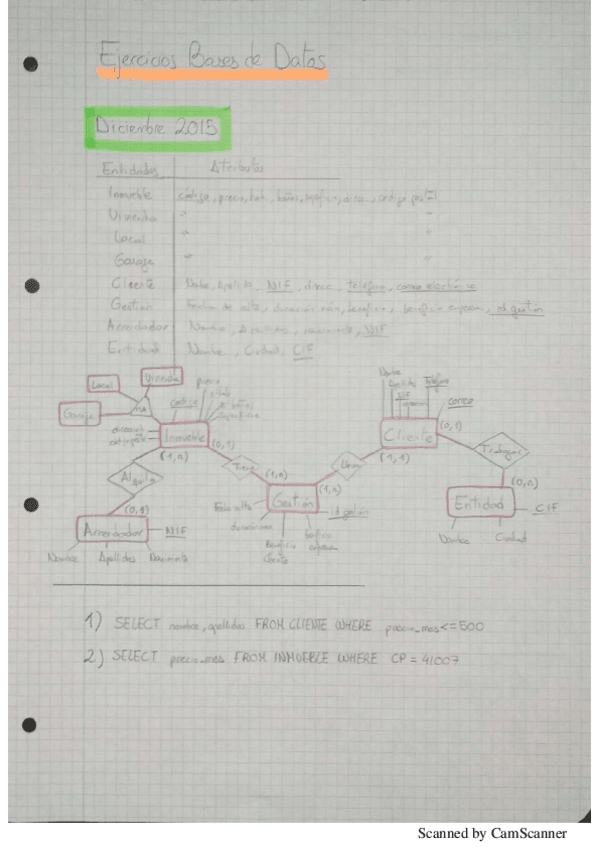 Ejercicios Bases de Datos
Diciembre 2015
Entidades Atributos
Inmueble código, precio, hab, baños, superficie, direc, código postal
Vivienda " "
Local " "
Garaje " "
Cliente Nombre, Apellido, NIF, direcc, teléfono, correo electrónico
Gestión Fecha de alta, duración, beneficio, beneficio empresa, id gestión
Arrendador Nombre, Apellidos, NIF
Entidad Nombre, Ciudad, CIF
Local Vivienda precio
Garaje código superficie
Inmueble (0,1)
(1,n)
Nombre
Apellidos Teléfono
NIF correo
Cliente (0,1)
(1,1)
Trabajar
Alquila Tiene (1,n) (1,n) (0,n)
(0,1) Fecha alta Gestión id gestión Entidad CIF
Arrendador NIF Nombre Ciudad
Nombre Apellidos Beneficio Cliente
1) SELECT nombre, apellidos FROM CLIENTE WHERE precio_mes <= 500
2) SELECT precio_mes FROM INMUEBLE WHERE CP = 41007
Scanned by CamScanner